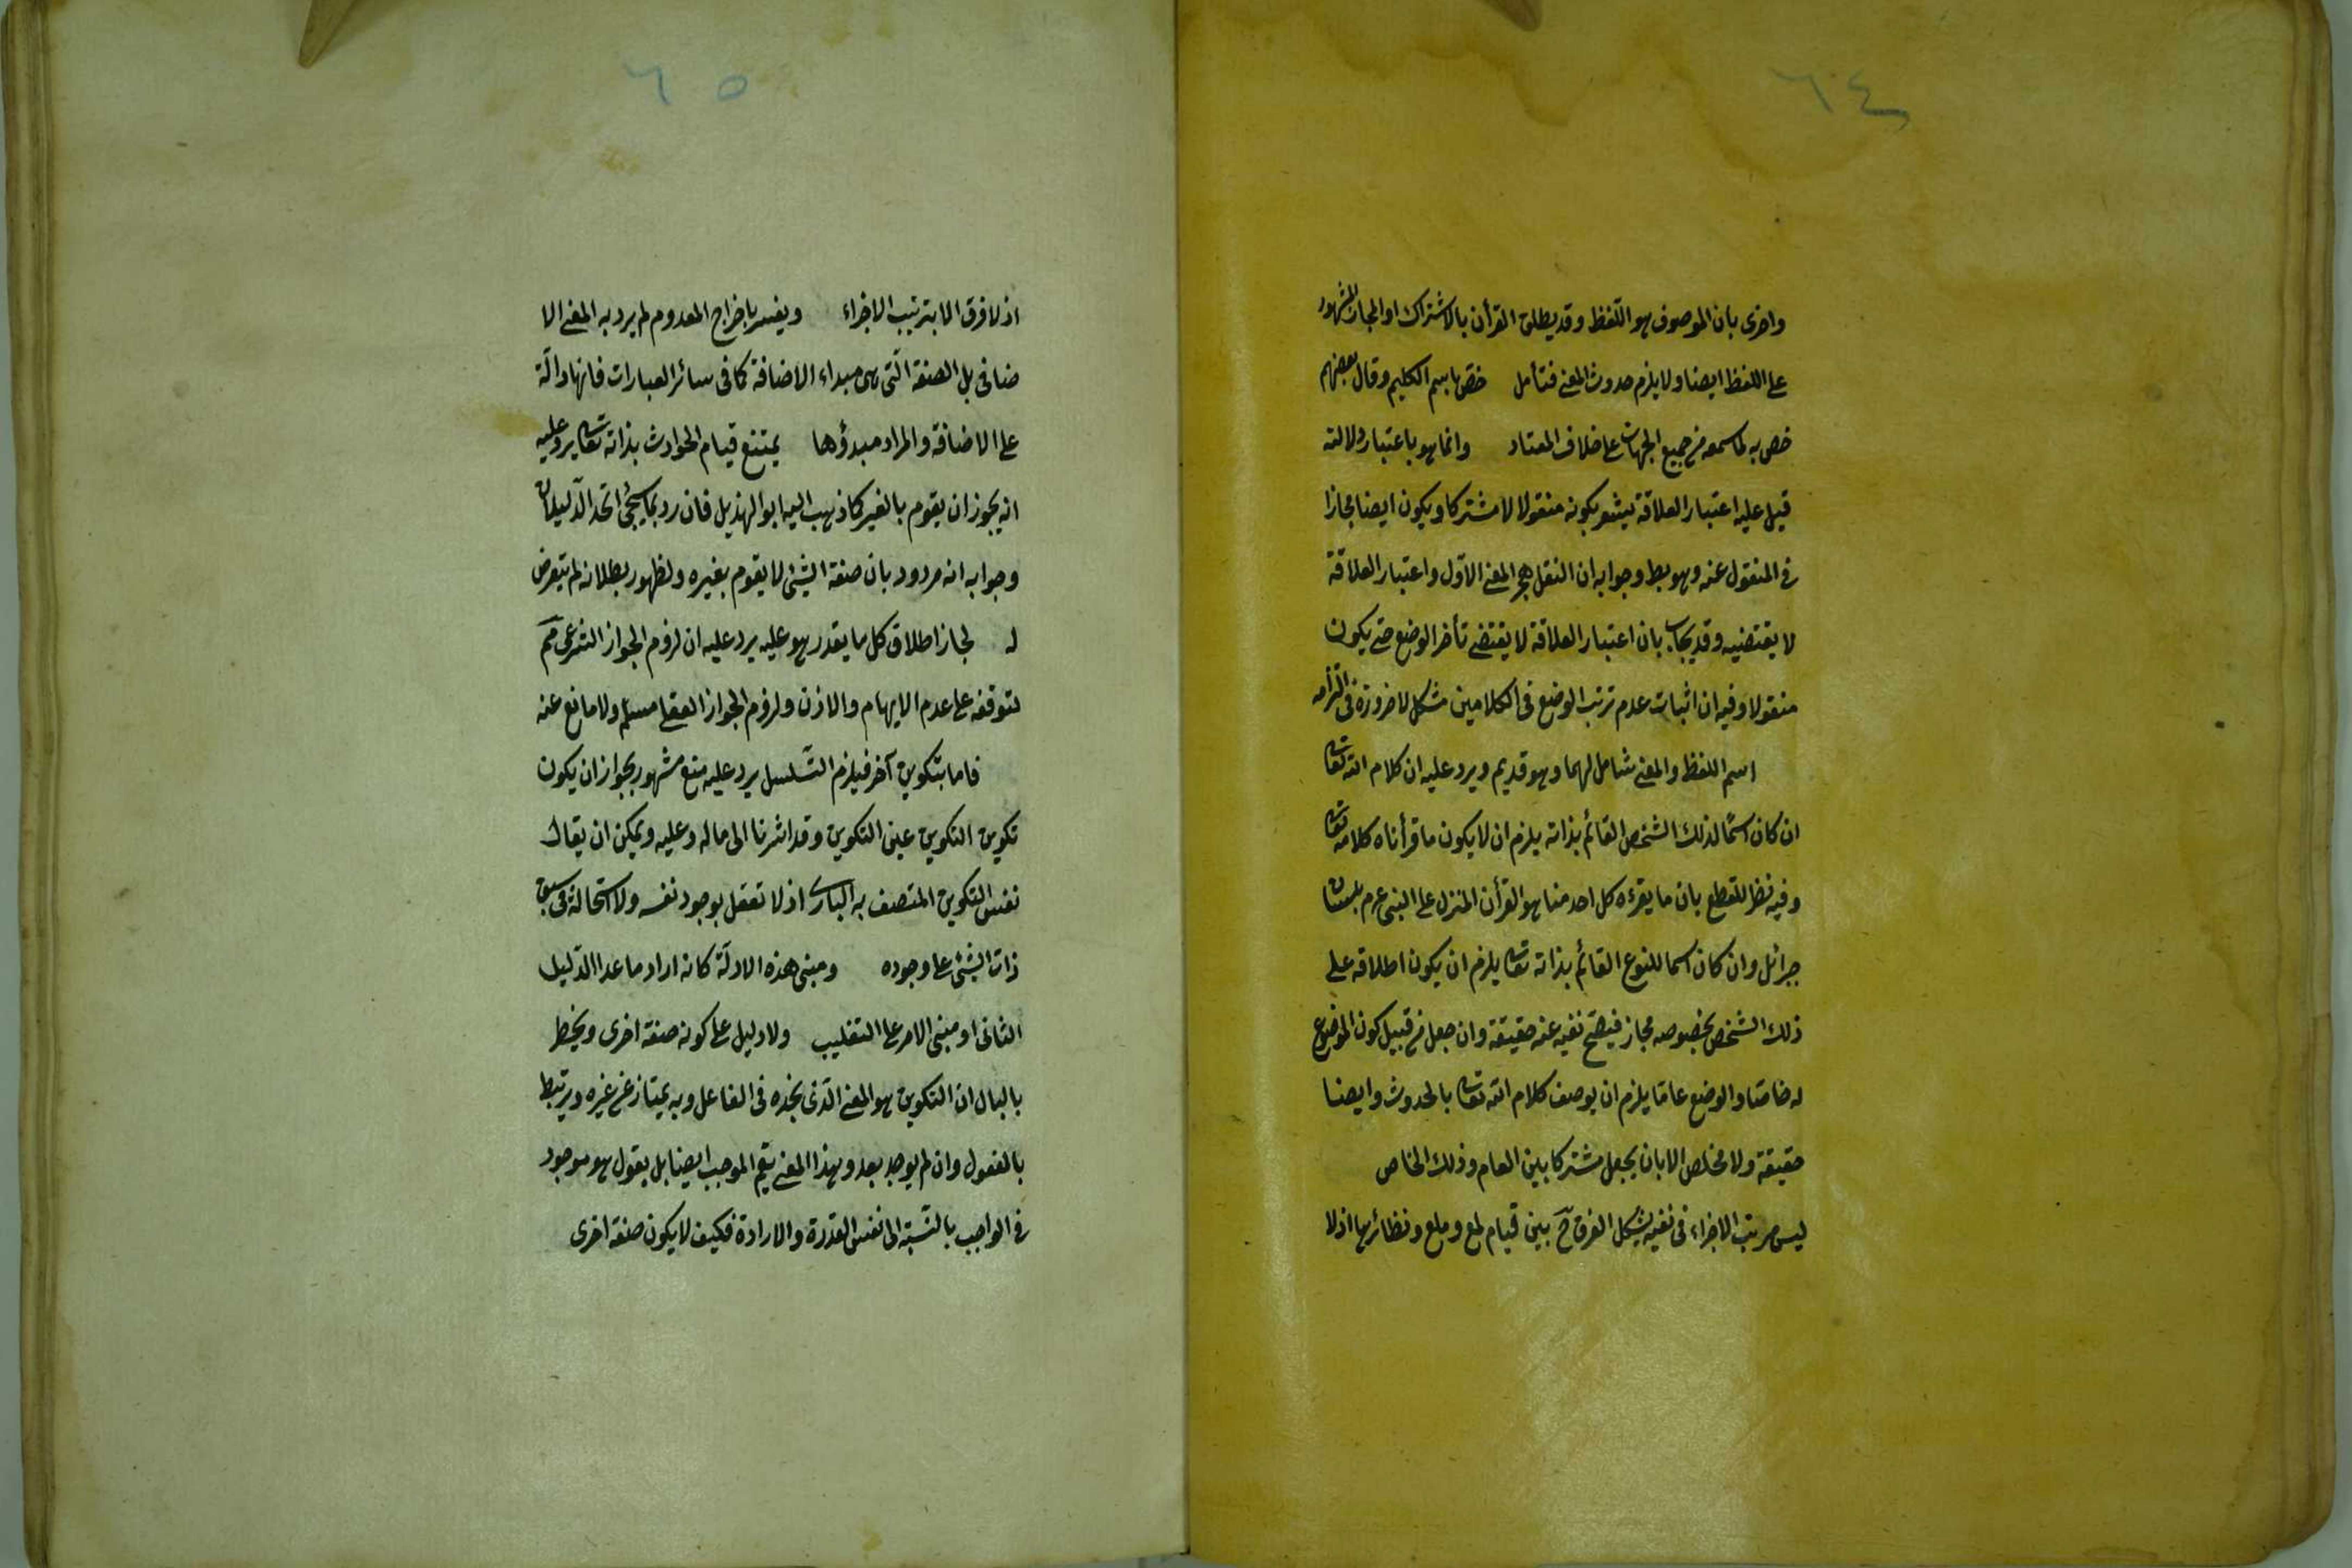 ٦٤
واخرى بان الموصوف هو اللفظ وقد يطلق القرأن بالاشتراك او المجاز المشهور
على اللفظ ايضا ولا يلزم حدوث المعنى فتأمل خص باسم الكليم وقال بعضهم
خص به لما سمعه من جميع الجهات على خلاف المعتاد وانما هو باعتبار دلالته
قيل عليه اعتبار العلاقة يشعر بكونه منقولا لا مشتركا ويكون ايضا مجازا
فى المنقول عنه وهو بط وجوابه ان النقل هجر المعنى الاول واعتبار العلاقة
لا يقتضيه وقد يجاب بان اعتبار العلاقة لا يقتضى تأخر الوضع حتى يكون
منقولا وفيه ان اثبات عدم ترتب الوضع فى الكلامين مشكل لا ضرورة فى التزامه
اسم اللفظ والمعنى شامل لهما وهو قديم ويرد عليه ان كلام الله تعالى
ان كان اسمًا لذلك الشخص القائم بذاته يلزم ان لا يكون ما قرأناه كلامه تعالى
وفيه نظر للقطع بان ما يقرءه كل احد منا هو القرأن المنزل على النبى عرم بلسان
جبرائل وان كان اسما للنوع القائم بذاته تعالى يلزم ان يكون اطلاقه على
ذلك الشخص بخصوصه مجاز فيصح نفيه عنه حقيقة وان جعل من قبيل كون الموضوع
له خاصا والوضع عاما يلزم ان يوصف كلام الله تعالى بالحدوث وايضا
حقيقة ولا مخلص الا بان يجعل مشتركا بين العام وذلك الخاص
ليس مرتب الاجزاء فى نفيه يشكل الفرق ح بين قيام لمع وملع ونظائرها اذ لا
٦٥
اذ لا فرق الا بترتيب الاجزاء ويفسر باخراج المعدوم لم يرد به المعنى الا
ضافى بل الصفة التى هى مبداء الاضافة كما فى سائر العبارات فانها دالّة
على الاضافة والمراد مبدؤها يمتنع قيام الحوادث بذاته تعالى يرد عليه
انه يجوز ان يقوم بالغير كما ذهب اليه ابو الهذيل فان رد بما سيجئ اتحد الدليلان
وجوابه انه مردود بان صفة الشئ لا يقوم بغيره ولظهور بطلانه لم يتعرض
له لجاز اطلاق كل ما يقدر هو عليه يرد عليه ان لزوم الجواز الشرعى مم
لتوقفه على عدم الايهام والاذن ولزوم الجواز العقلى مسلم ولا مانع عنه
فاما بتكوين آخر فيلزم التسلسل يرد عليه منع مشهور بجواز ان يكون
تكوين التكوين عين التكوين وقد اشرنا الى ماله وعليه ويمكن ان يقال
نفس التكوين المتصف به البارى اذ لا تعقل بوجود نفسه ولا استحالة فى سبق
ذات الشئ على وجوده ومبنى هذه الادلّة كانه اراد ما عدا الدليل
الثانى او مبنى الامر على التغليب ولا دليل على كونه صفة اخرى ويخطر
بالبال ان التكوين هو المعنى الذى نجده فى الفاعل وبه يمتاز عن غيره ويرتبط
بالمفعول وان لم يوجد بعد وبهذا المعنى يتم الموجب ايضا بل يقول هو موجود
فى الواجب بالنسبة الى نفس القدرة والارادة فكيف لا يكون صفة اخرى